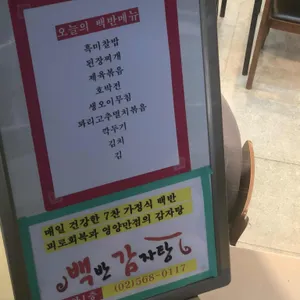 오늘의 백반메뉴
흑미찰밥
된장찌개
제육볶음
호박전
생오이무침
꽈리고추멸치볶음
깍두기
김치
김
매일 건강한 7찬 가정식 백반
피로회복과 영양만점의 감자탕
백반 감자탕
(02)568-9117